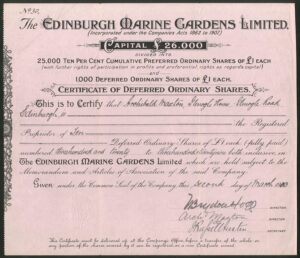 The EDINBURGH MARINE GARDENS LIMITED.
(Incorporated under the Companies Acts 1862 to 1907)
CAPITAL £26,000
DIVIDED INTO
25,000 TEN PER CENT CUMULATIVE PREFERRED ORDINARY SHARES OF £1 EACH
(with further rights of participation in profits and preferential rights as regards capital)
AND
1,000 DEFERRED ORDINARY SHARES OF £1 EACH.
CERTIFICATE OF DEFERRED ORDINARY SHARES.
This is to Certify that Archibald
Edinburgh is the Registered
Proprietor of Ten
Deferred Ordinary Shares of £1 each (fully paid)
numbered to inclusive, in
The EDINBURGH MARINE GARDENS LIMITED which are held subject to the
Memorandum and Articles of Association of the said Company.
Given under the Common Seal of the Company this second day of March
DIRECTOR
DIRECTOR
This Certificate must be delivered up at the Company's Office before a transfer of the whole or
any portion of the shares covered by it can be registered or a new certificate issued in exchange.